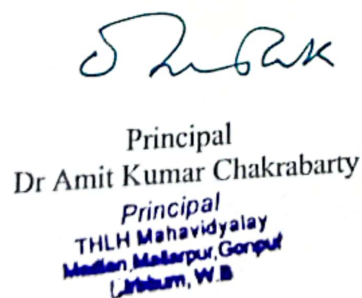 Principal
Dr Amit Kumar Chakrabarty
Principal
THLH Mahavidyalay
Madian, Mallarpur, Gonpur
Birbhum, W.B